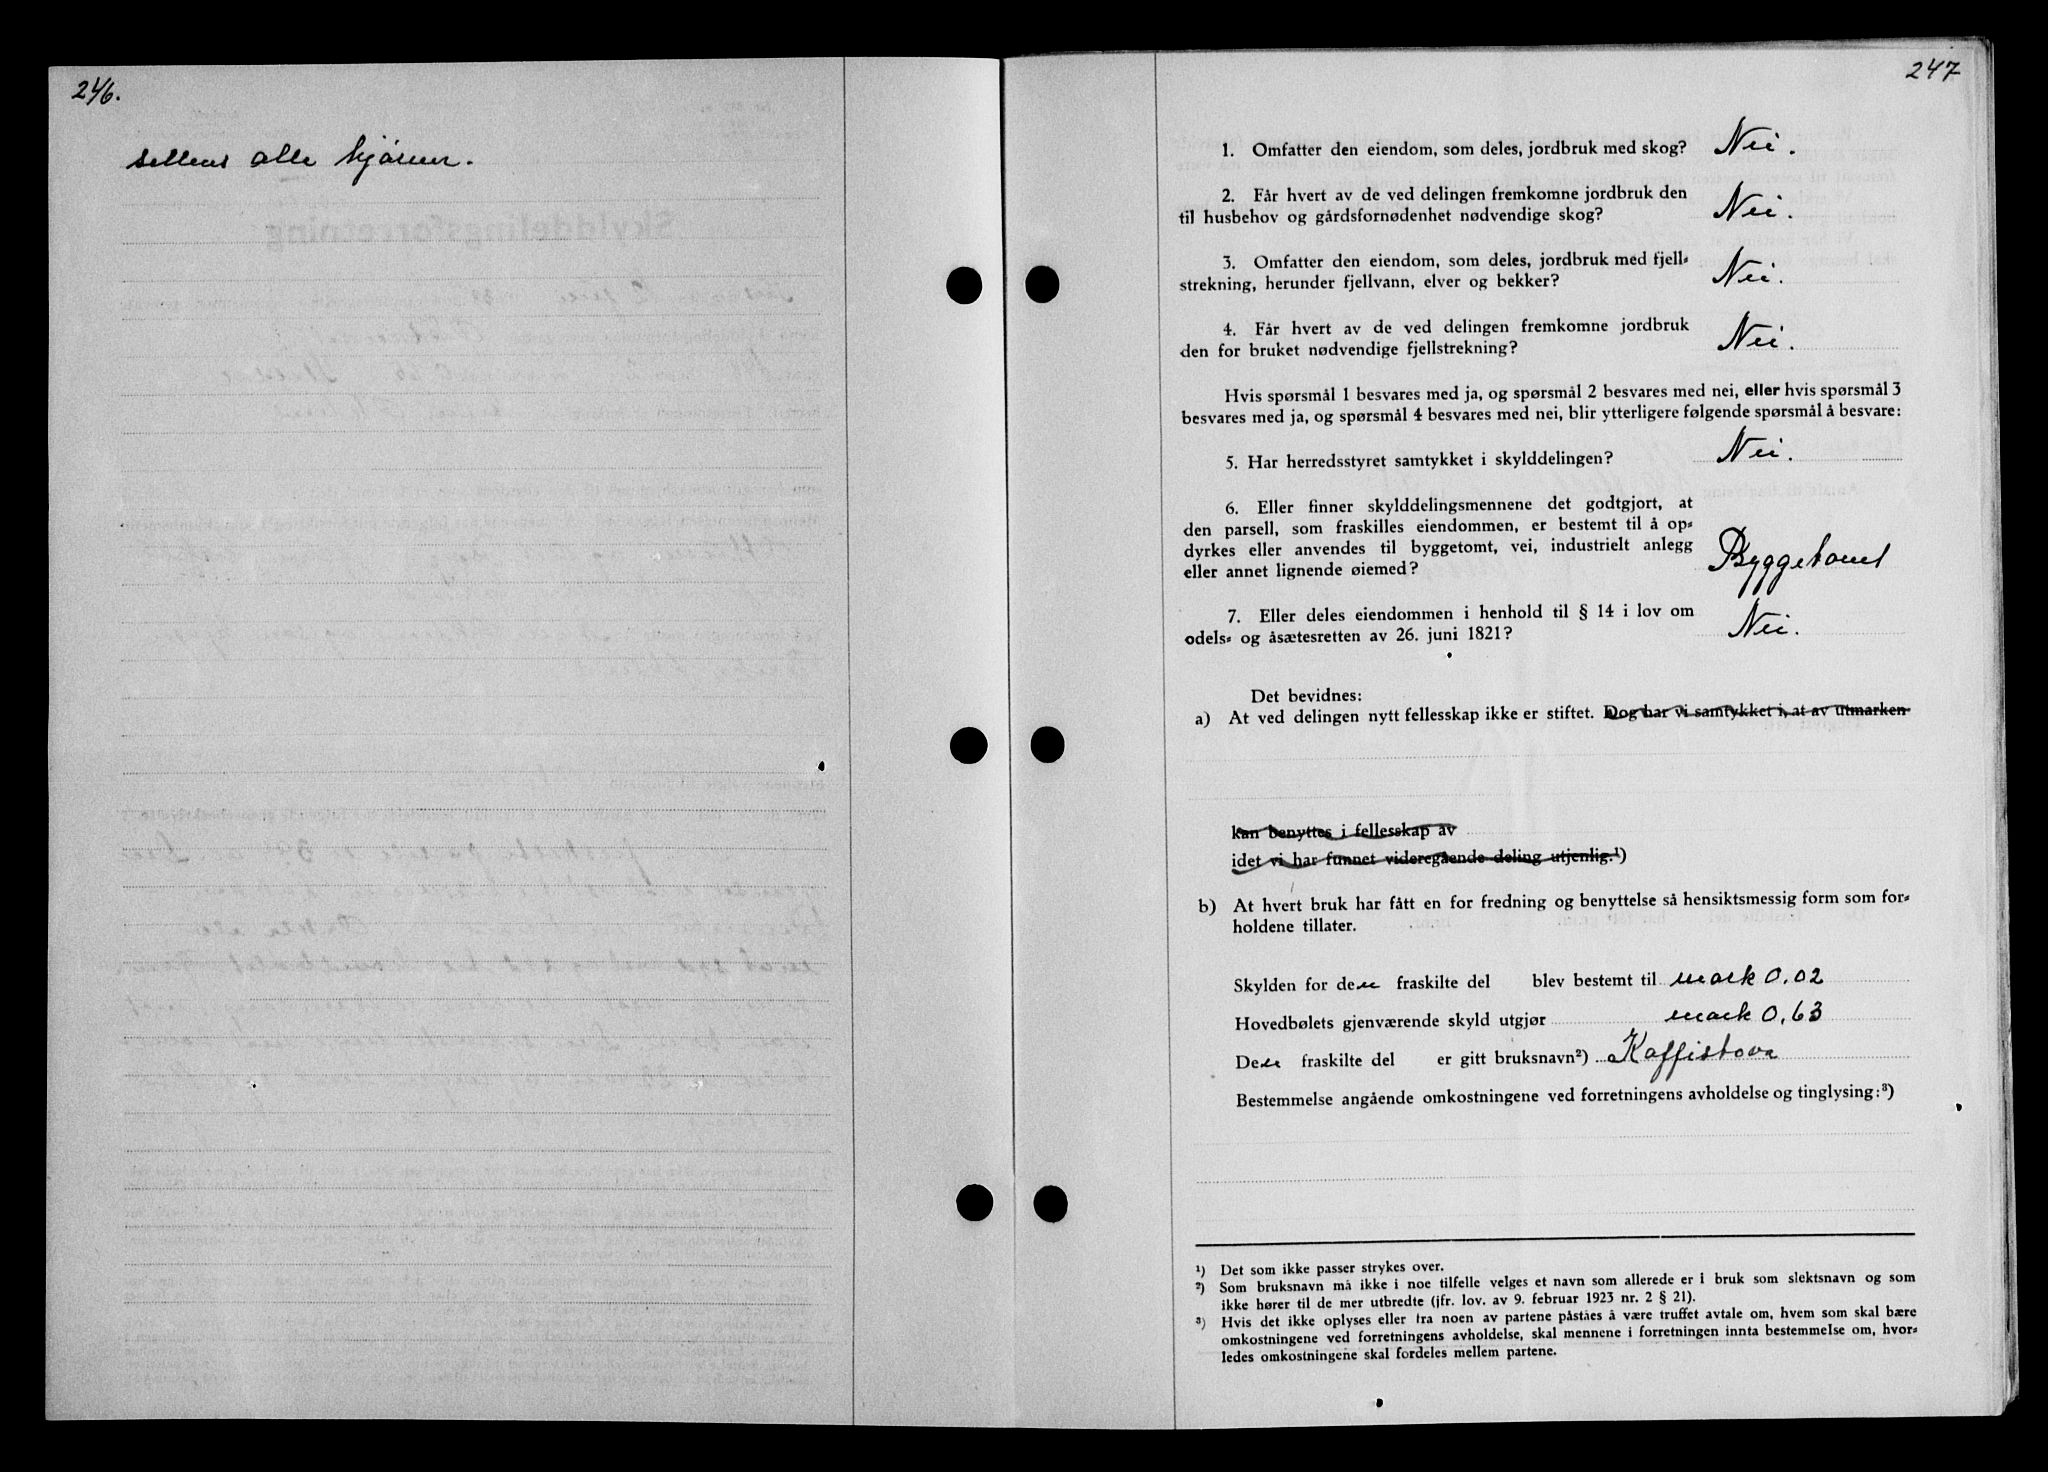 246.
alle hjørner.
247
1. Omfatter den eiendom, som deles, jordbruk med skog? Nei.
2. Får hvert av de ved delingen fremkomne jordbruk den
til husbehov og gårdsfornødenhet nødvendige skog? Nei.
3. Omfatter den eiendom, som deles, jordbruk med fjell-
strekning, herunder fjellvann, elver og bekker? Nei.
4. Får hvert av de ved delingen fremkomne jordbruk
den for bruket nødvendige fjellstrekning? Nei.
Hvis spørsmål 1 besvares med ja, og spørsmål 2 besvares med nei, eller hvis spørsmål 3
besvares med ja, og spørsmål 4 besvares med nei, blir ytterligere følgende spørsmål å besvare:
5. Har herredsstyret samtykket i skylddelingen? Nei.
6. Eller finner skylddelingsmennene det godtgjort, at
den parsell, som fraskilles eiendommen, er bestemt til å op-
dyrkes eller anvendes til byggetomt, vei, industrielt anlegg
eller annet lignende øiemed? Byggetomt
7. Eller deles eiendommen i henhold til § 14 i lov om
odels- og åsætesretten av 26. juni 1821? Nei.
Det bevidnes:
a) At ved delingen nytt fellesskap ikke er stiftet. Dog har vi samtykket i, at av utmarken
kan benyttes i fellesskap av
idet vi har funnet videregående deling utjenlig.¹)
b) At hvert bruk har fått en for fredning og benyttelse så hensiktsmessig form som for-
holdene tillater.
Skylden for den fraskilte del blev bestemt til mark 0,02
Hovedbølets gjenværende skyld utgjør mark 0,63
Den fraskilte del er gitt bruksnavn²) Kaffistova
Bestemmelse angående omkostningene ved forretningens avholdelse og tinglysing:³)
¹) Det som ikke passer strykes over.
²) Som bruksnavn må ikke i noe tilfelle velges et navn som allerede er i bruk som slektsnavn og som
ikke hører til de mer utbredte (jfr. lov. av 9. februar 1923 nr. 2 § 21).
³) Hvis det ikke oplyses eller fra noen av partene påståes å være truffet avtale om, hvem som skal bære
omkostningene ved forretningens avholdelse, skal mennene i forretningen innta bestemmelse om, hvor-
ledes omkostningene skal fordeles mellem partene.